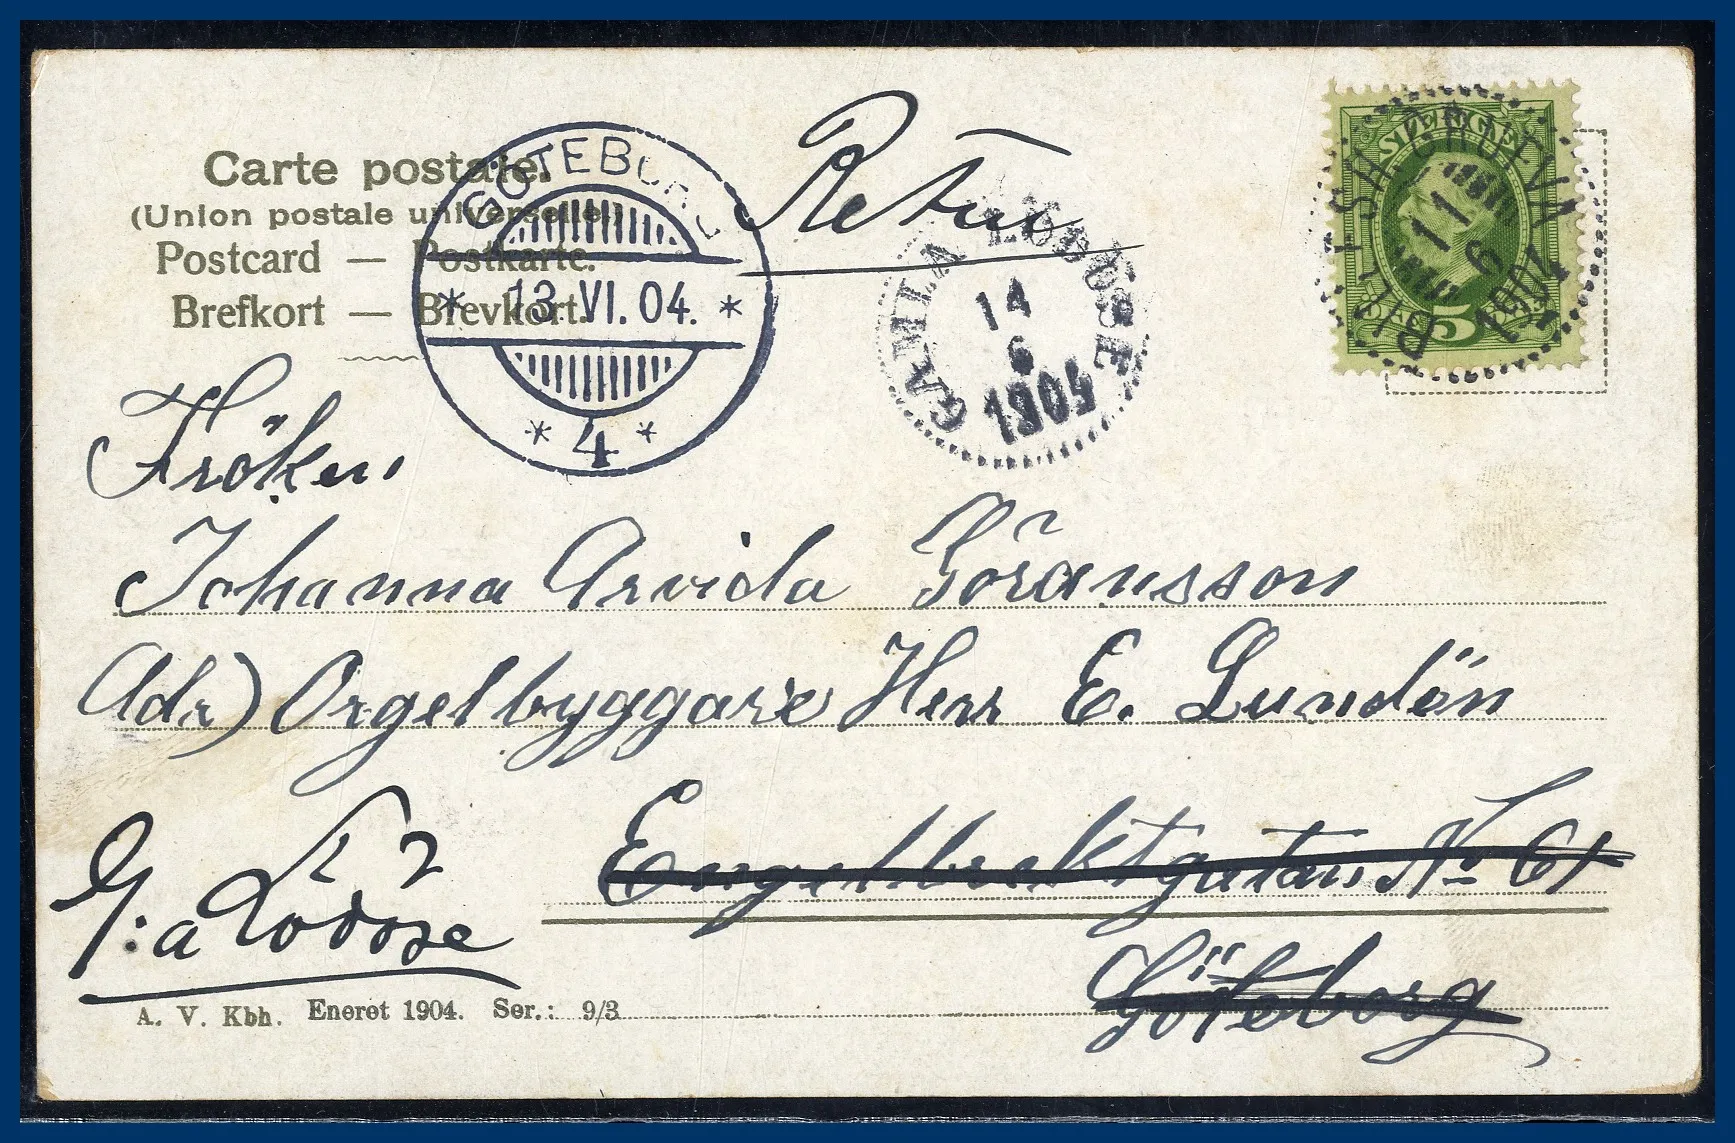 Carte postale.
(Union postale universelle.)
Postcard — Postkarte.
Brefkort — Brevkort.
GÖTEBORG
* 13. VI. 04. *
* 4 *
Retur
GAMLA LÖDÖSE
14
6
1904
SVERIGE
11
6
1904
5
Fröken
Johanna Arvida Göransson
Adr) Orgelbyggare Herr E. Lundén
Engelbrektgatan No 61
Göteborg
G:a Lödöse
A. V. Kbh. Eneret 1904. Ser.: 9/3